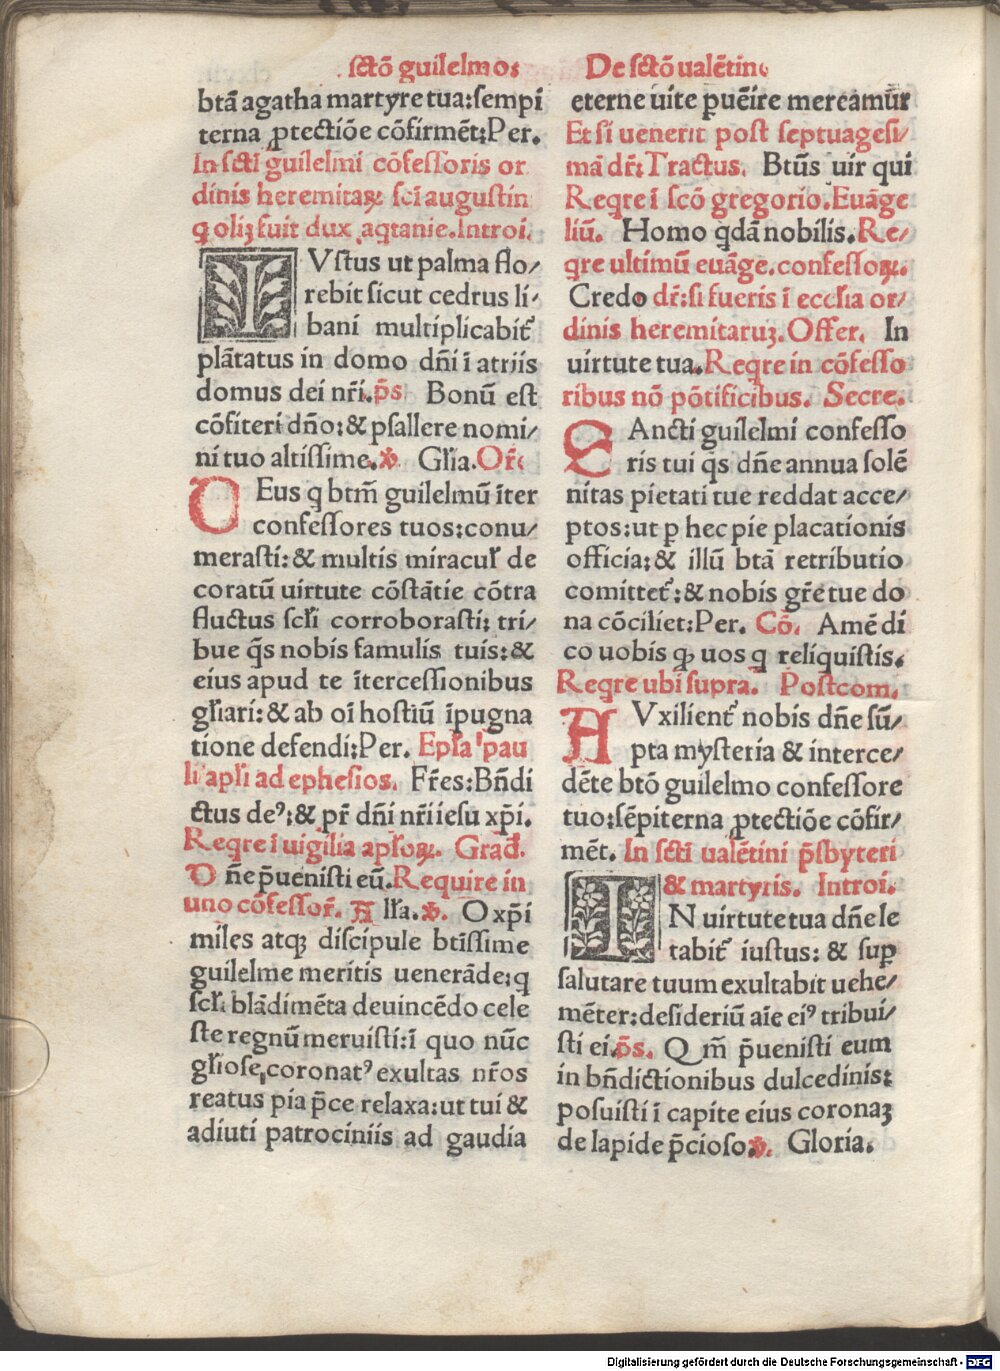 sctō guilelmo:
btā agatha martyre tua:sempi
terna ꝓtectiōe cōfirmēt:Per.
In scti guilelmi cōfessoris or
dinis heremitaꝝ sci augustin
q̄ oliȝ fuit dux aq̄tanie.Introi.
IVstus ut palma flo/
rebit sicut cedrus li/
bani multiplicabit᷑
plātatus in domo dn̄i ī atriis
domus dei nr̄i.p̄s Bonū est
cōfiteri dn̄o:& psallere nomi/
ni tuo altissime.℣. Gl̄ia.Or̄
DEus q̄ btm̄ guilelmū īter
confessores tuos:conu/
merasti:& multis miracul̄ de
coratū uirtute cōstātie cōtra
fluctus scl̄i corroborasti: tri/
bue q̄s nobis famulis tuis:&
eius apud te ītercessionibus
gl̄iari:& ab oī hostiū īpugna
tione defendi:Per. Epl̄a pau
li apl̄i ad ephesios. Fr̄es:Bn̄di
ctus deꝰ:& pr̄ dn̄i nr̄i iesu xp̄i.
Reqre ī uigilia apl̄oꝝ. Grad̄.
Dn̄e p̄uenisti eū.Require in
uno cōfessor̄. All̄a.℣. O xp̄i
miles atqȝ discipule btissime
guilelme meritis uenerāde:q
scl̄i blādimēta deuincēdo cele
ste regnū meruisti:ī quo nūc
gl̄iose coronatꝰ exultas nr̄os
reatus pia p̄ce relaxa:ut tui &
adiuti patrociniis ad gaudia
De sctō ualētino
eterne uite ꝑuēire mereamur
Et si uenerit post septuagesi/
mā dr̄:Tractus. Btūs uir qui
Reqre ī scō gregorio.Euāge
liū. Homo q̄dā nobilis.Re/
qre ultimū euāge.confessoꝝ.
Credo dr̄:si fueris ī ecclsia or/
dinis heremitaruȝ.Offer. In
uirtute tua.Reqre in cōfesso
ribus nō pōtificibus. Secre.
SAncti guilelmi confesso
ris tui q̄s dn̄e annua solē
nitas pietati tue reddat acce/
ptos:ut ꝑ hec pie placationis
officia:& illū btā retributio
comittet᷑:& nobis gr̄e tue do
na cōciliet:Per. Cō. Amē di
co uobis ꝙ uos q̄ reliquistis.
Reqre ubi supra. Postcom.
AVxilient᷑ nobis dn̄e sū/
pta mysteria & interce/
dēte btō guilelmo confessore
tuo:sēpiterna ꝓtectiōe cōfir/
mēt. In scti ualētini p̄sbyteri
& martyris. Introi.
IN uirtute tua dn̄e le
tabit᷑ iustus: & suꝑ
salutare tuum exultabit uehe/
mēter:desideriū aīe eiꝰ tribui/
sti ei.p̄s. Qm̄ p̄uenisti eum
in bn̄dictionibus dulcedinis:
posuisti ī capite eius coronaȝ
de lapide p̄cioso.℣. Gloria.
Digitalisierung gefördert durch die Deutsche Forschungsgemeinschaft - DFG